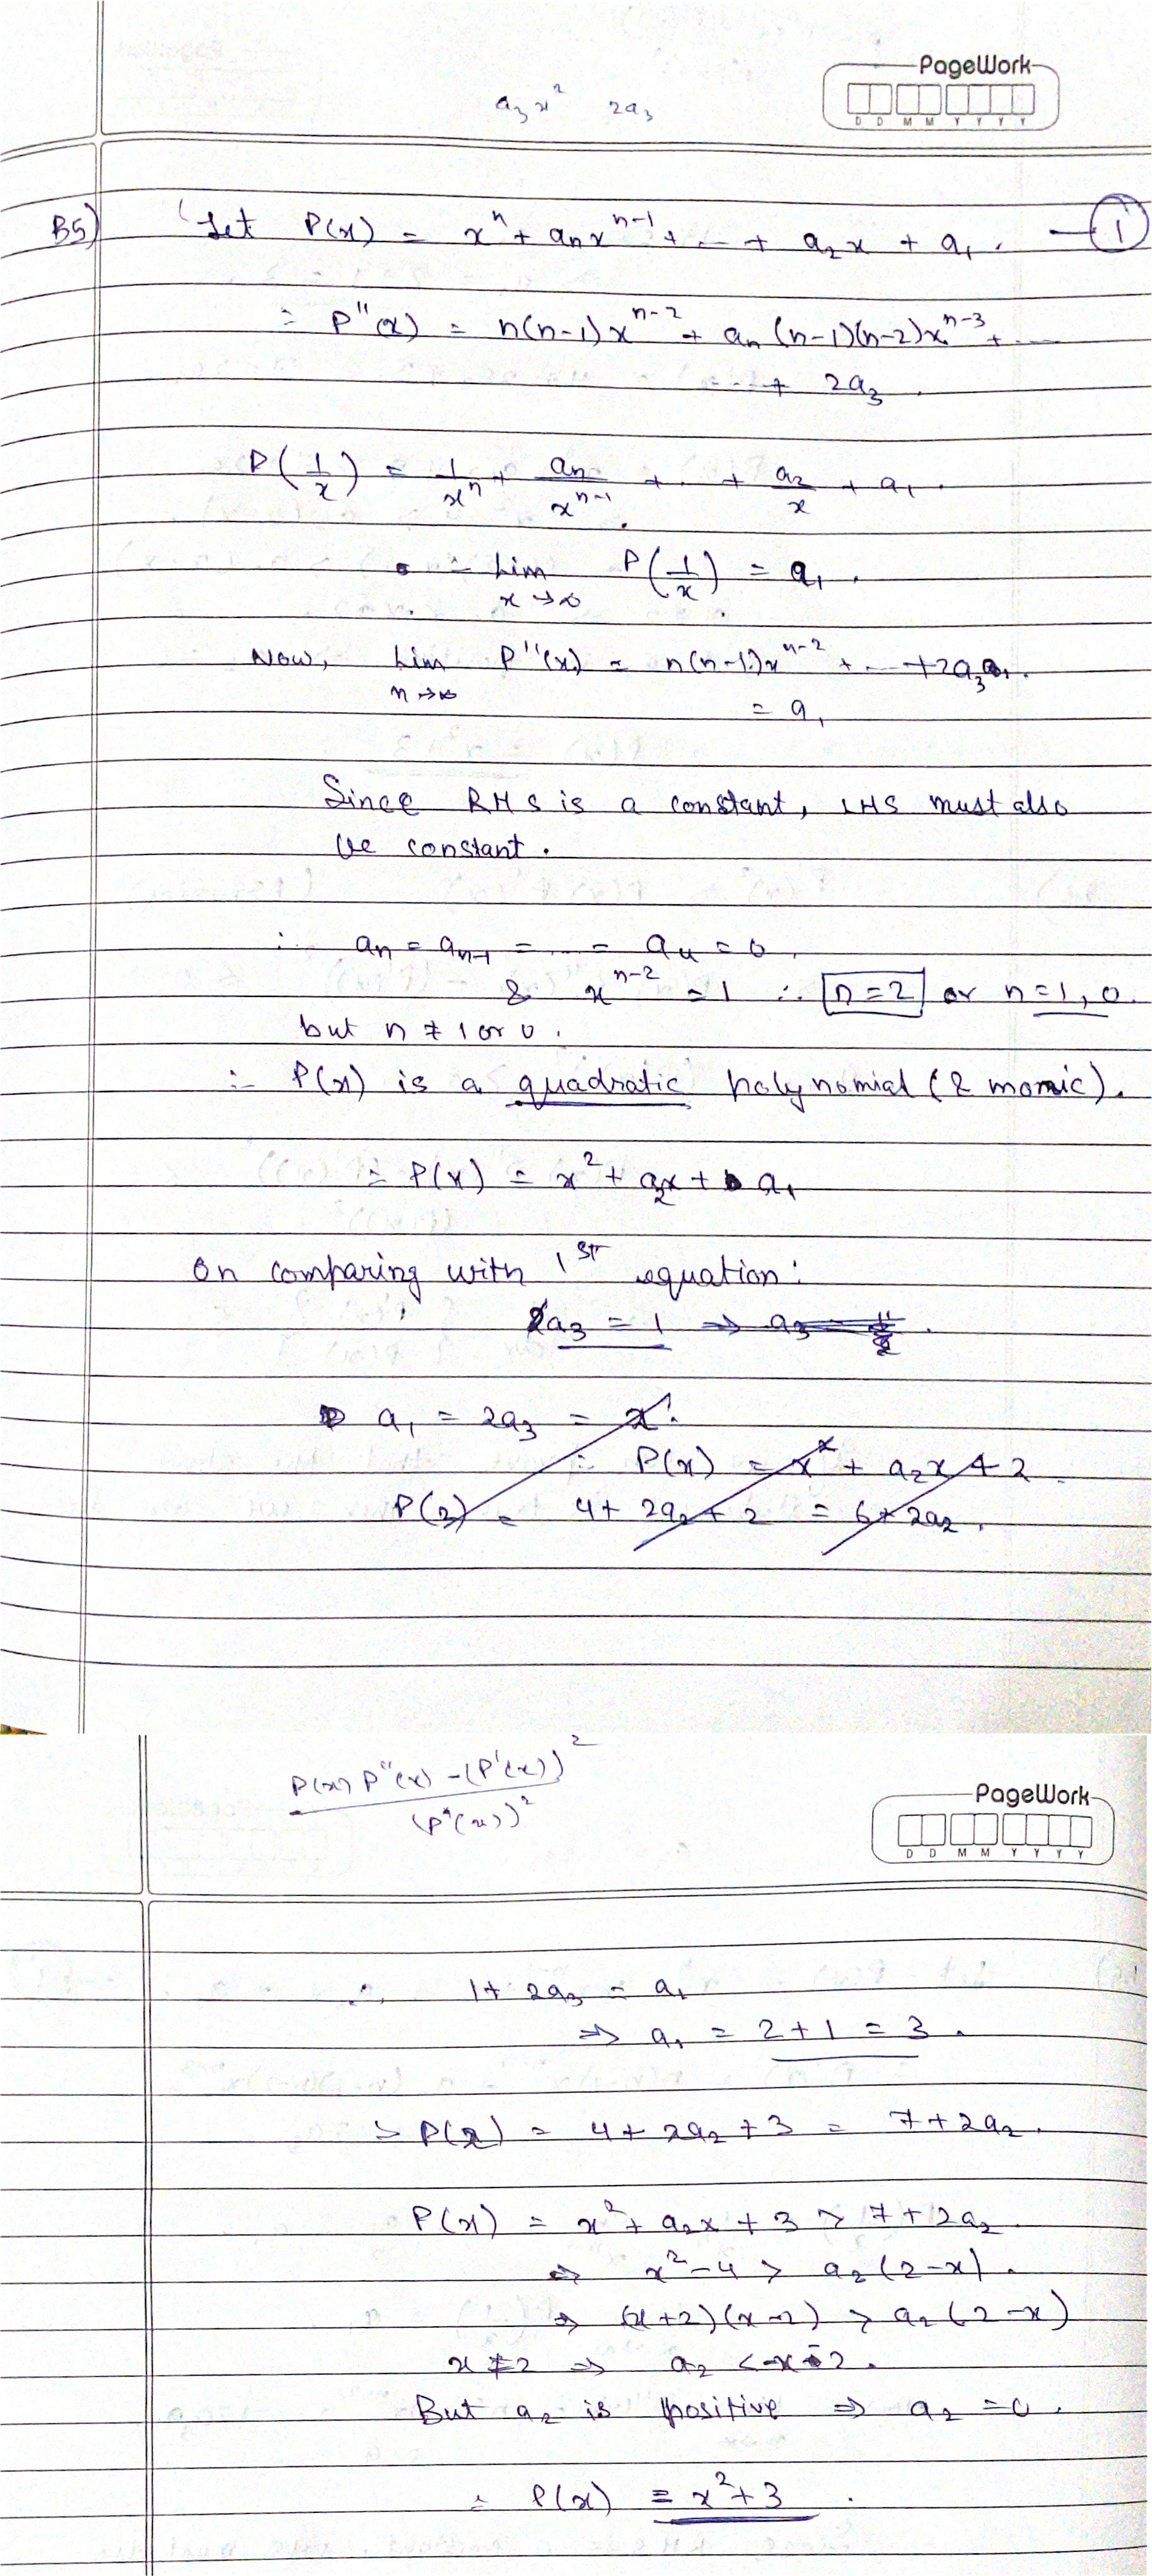 PageWork
a₃x² 2a₃
D D M M Y Y Y Y
B5) Let P(x) = xⁿ + aₙxⁿ⁻¹ + ... + a₂x + a₁. — ①
∴ P''(x) = n(n-1)xⁿ⁻² + aₙ(n-1)(n-2)xⁿ⁻³ + ...
... + 2a₃.
P(1/x) = 1/xⁿ + aₙ/xⁿ⁻¹ + .. + a₂/x + a₁.
∴ Lim x→∞ P(1/x) = a₁.
Now, Lim n→∞ P''(x) = n(n-1)xⁿ⁻² + ... + 2a₃.
= a₁
Since RHS is a constant, LHS must also
be constant.
∴ aₙ = aₙ₋₁ = ... = a₄ = 0.
& xⁿ⁻² = 1 ∴ n=2 or n=1, 0.
but n ≠ 1 or 0.
∴ P(x) is a quadratic polynomial (& monic).
∴ P(x) = x² + a₂x + a₁
On comparing with 1ST equation:
a₃ = 1 ⇒ a₃ =
a₁ = 2a₃ = 2.
∴ P(x) = x² + a₂x + 2
P(2) = 4 + 2a₂ + 2 = 6 + 2a₂.
P(x) P''(x) - (P'(x))² / (P''(x))²
PageWork
D D M M Y Y Y Y
∴ 1 + 2a₃ = a₁
⇒ a₁ = 2 + 1 = 3.
∴ P(2) = 4 + 2a₂ + 3 = 7 + 2a₂.
P(x) = x² + a₂x + 3 > 7 + 2a₂
⇒ x² - 4 > a₂(2-x).
⇒ (x+2)(x-2) > a₂(2-x)
x ≠ 2 ⇒ a₂ < -x-2.
But a₂ is positive ⇒ a₂ = 0.
∴ P(x) = x² + 3.